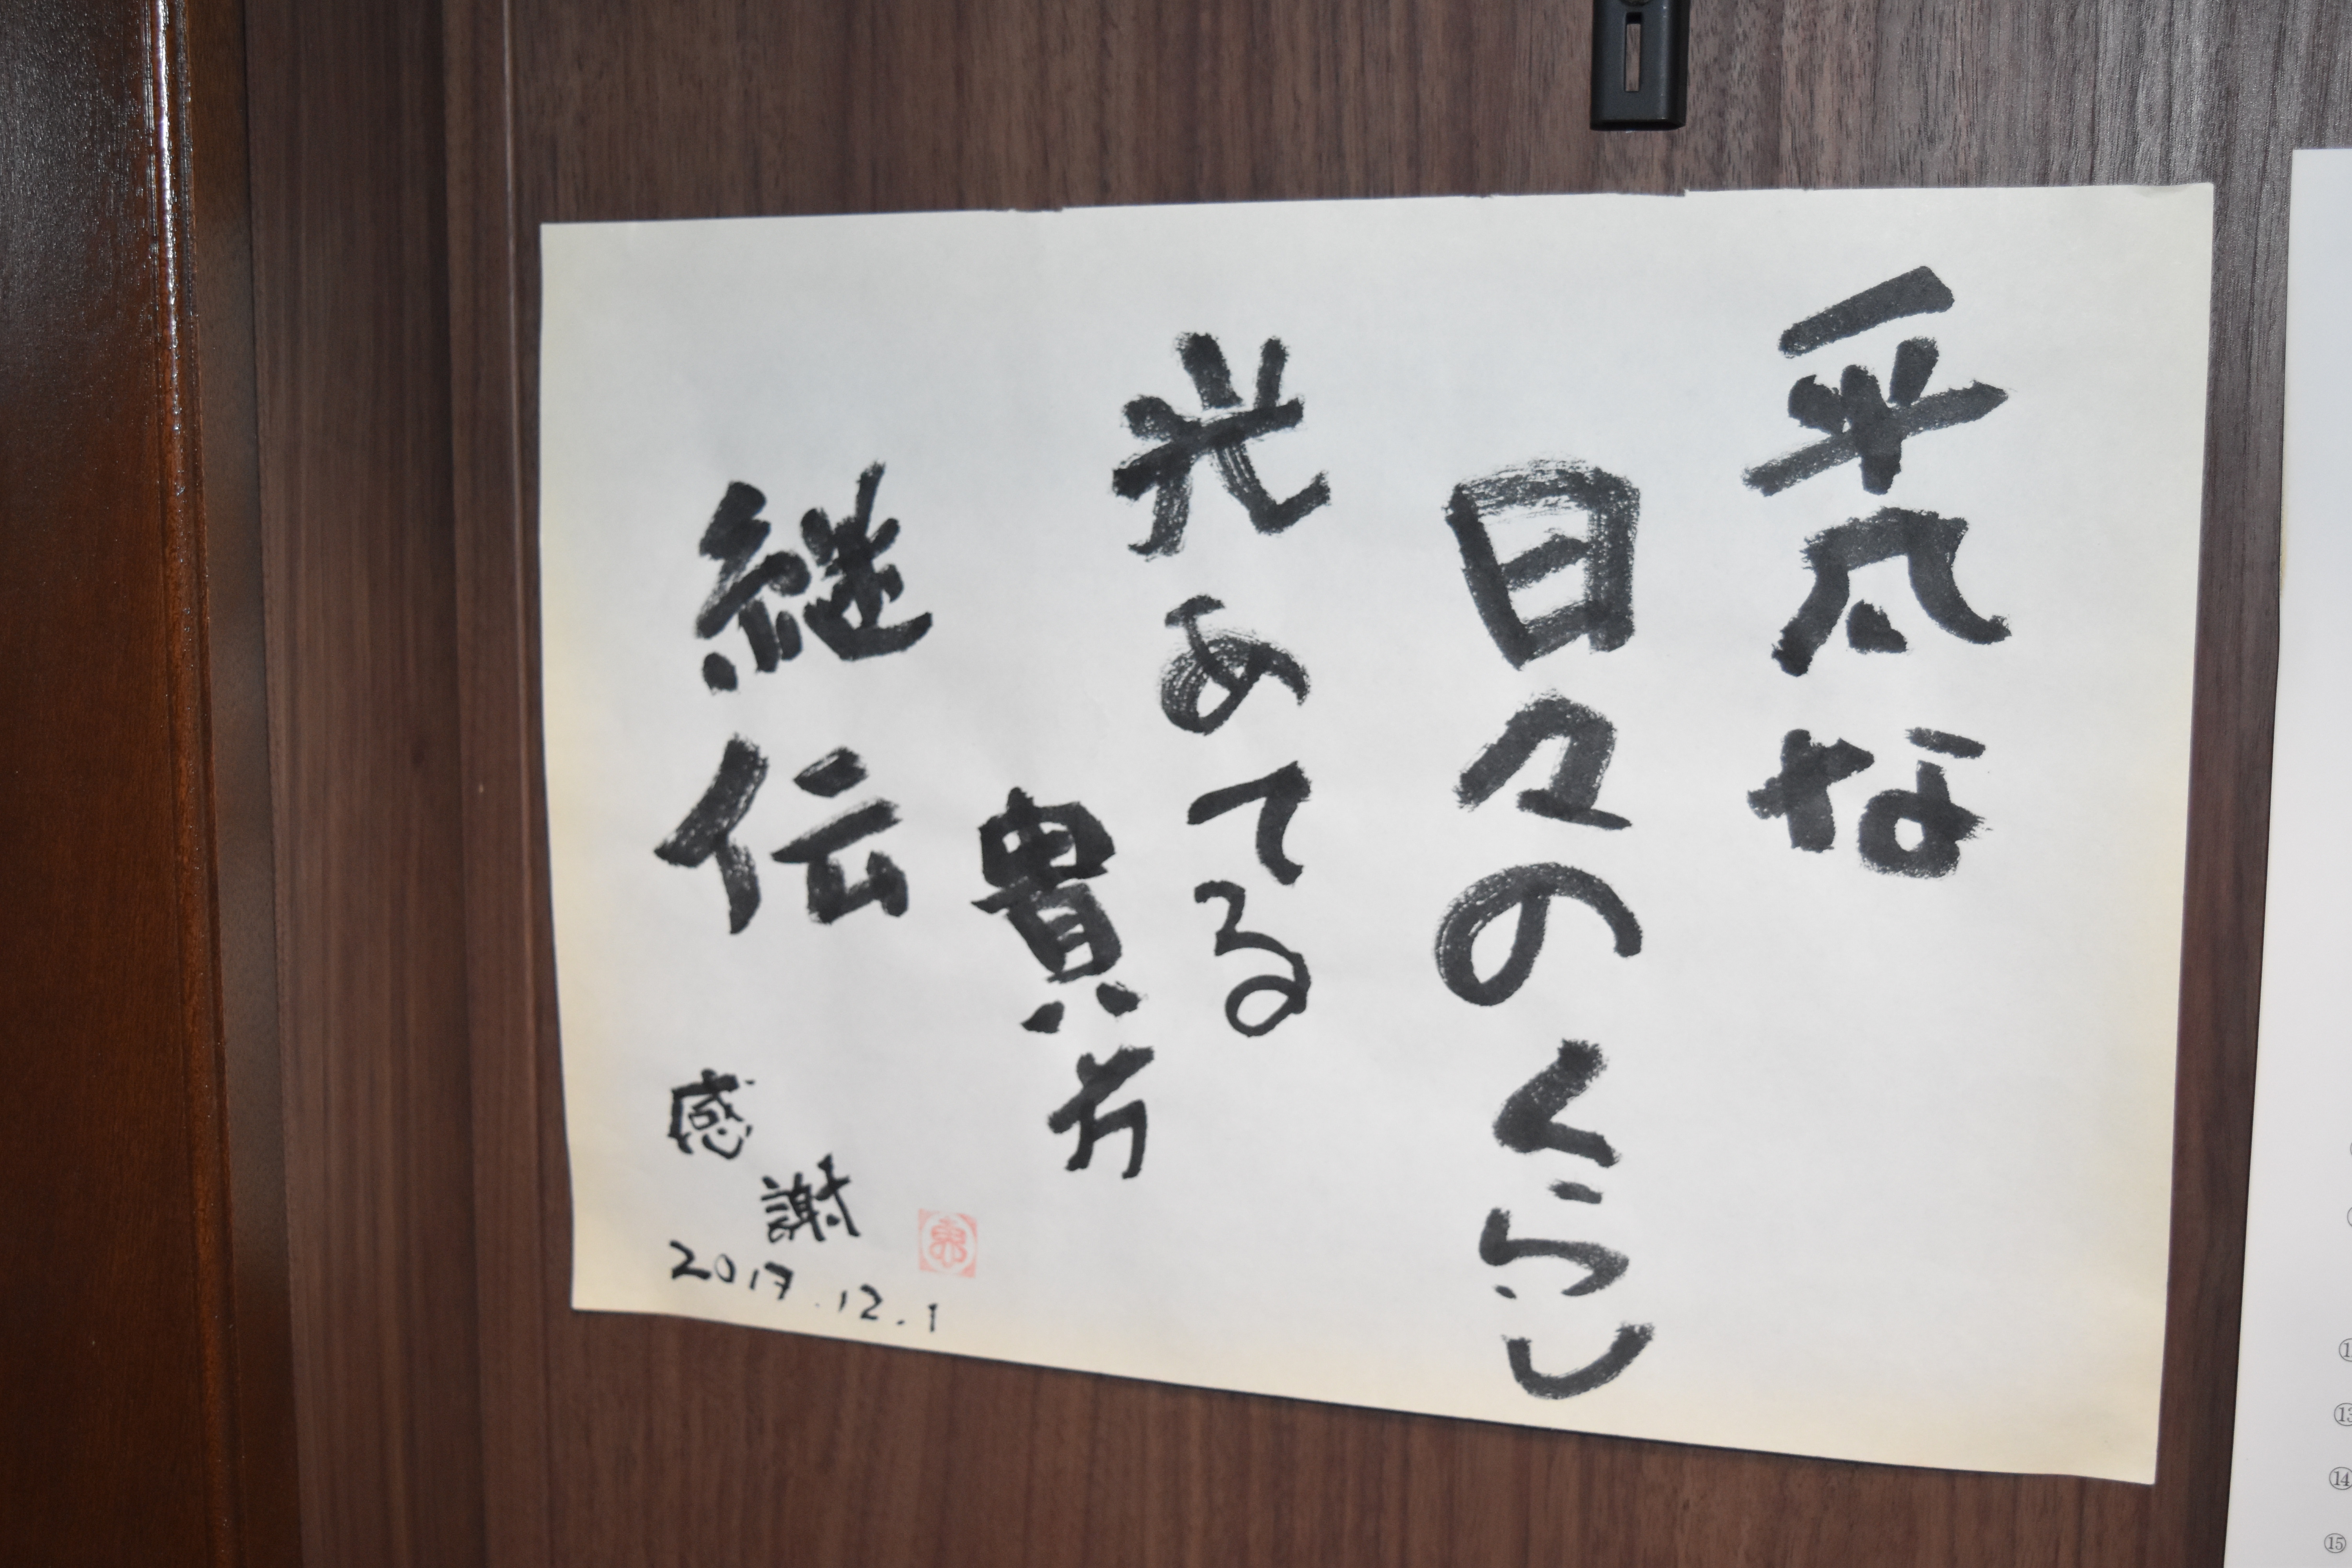 平凡な
日々のくらし
光あてる
貴方
継伝
感謝
2017.12.1
⑬
⑭
⑮